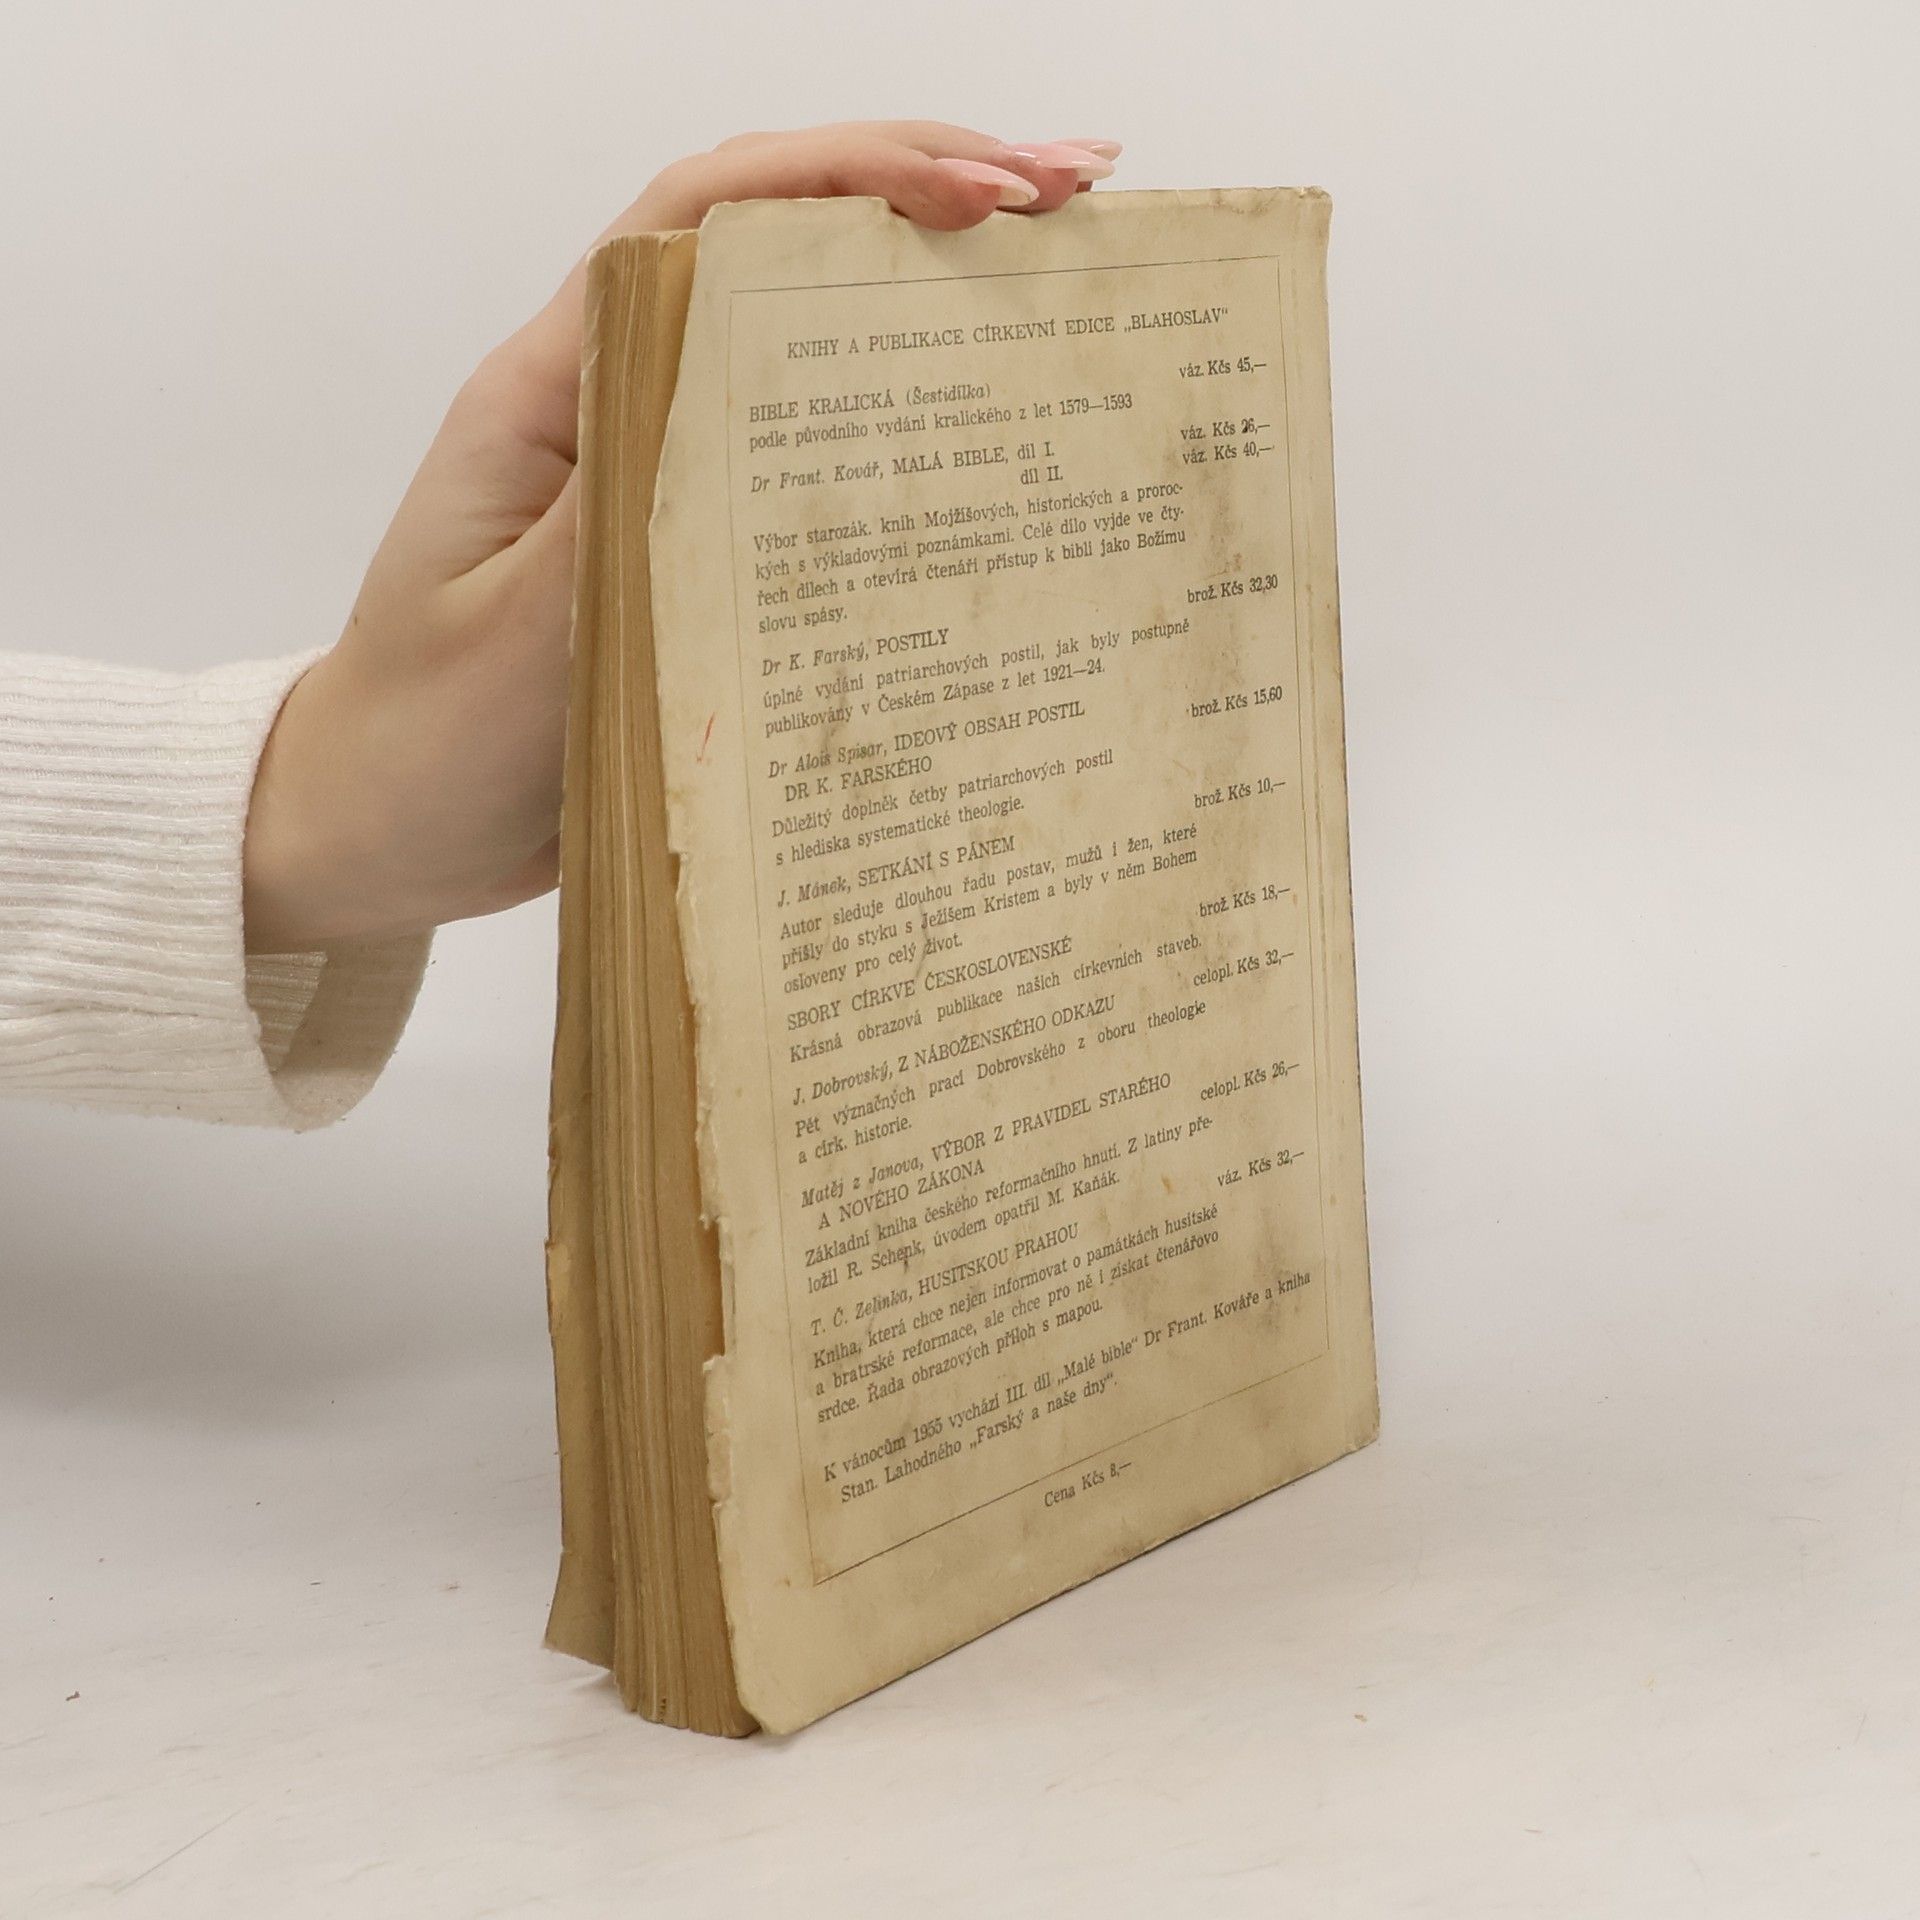 KNIHY A PUBLIKACE CÍRKEVNÍ EDICE „BLAHOSLAV“
váz. Kčs 45,—
BIBLE KRALICKÁ (Šestidílka)
podle původního vydání kralického z let 1579—1593
Dr Frant. Kovář, MALÁ BIBLE, díl I. váz. Kčs 26,—
díl II. váz. Kčs 40,—
Výbor starozák. knih Mojžíšových, historických a proroc-
kých s výkladovými poznámkami. Celé dílo vyjde ve čty-
řech dílech a otevírá čtenáři přístup k bibli jako Božímu
slovu spásy.
Dr K. Farský, POSTILY brož. Kčs 32,30
úplné vydání patriarchových postil, jak byly postupně
publikovány v Českém Zápase z let 1921—24.
Dr Alois Spisar, IDEOVÝ OBSAH POSTIL brož. Kčs 15,60
DR K. FARSKÉHO
Důležitý doplněk četby patriarchových postil
s hlediska systematické theologie.
J. Mánek, SETKÁNÍ S PÁNEM brož. Kčs 10,—
Autor sleduje dlouhou řadu postav, mužů i žen, které
přišly do styku s Ježíšem Kristem a byly v něm Bohem
osloveny pro celý život.
SBORY CÍRKVE ČESKOSLOVENSKÉ brož. Kčs 18,—
Krásná obrazová publikace našich církevních staveb.
J. Dobrovský, Z NÁBOŽENSKÉHO ODKAZU celopl. Kčs 32,—
Pět význačných prací Dobrovského z oboru theologie
a círk. historie.
Matěj z Janova, VÝBOR Z PRAVIDEL STARÉHO celopl. Kčs 26,—
A NOVÉHO ZÁKONA
Základní kniha českého reformačního hnutí. Z latiny pře-
ložil R. Schenk, úvodem opatřil M. Kaňák.
T. Č. Zelinka, HUSITSKOU PRAHOU váz. Kčs 32,—
Kniha, která chce nejen informovat o památkách husitské
a bratrské reformace, ale chce pro ně i získat čtenářovo
srdce. Řada obrazových příloh s mapou.
K vánocům 1955 vychází III. díl „Malé bible“ Dr Frant. Kováře a kniha
Stan. Lahodného „Farský a naše dny“.
Cena Kčs 8,—